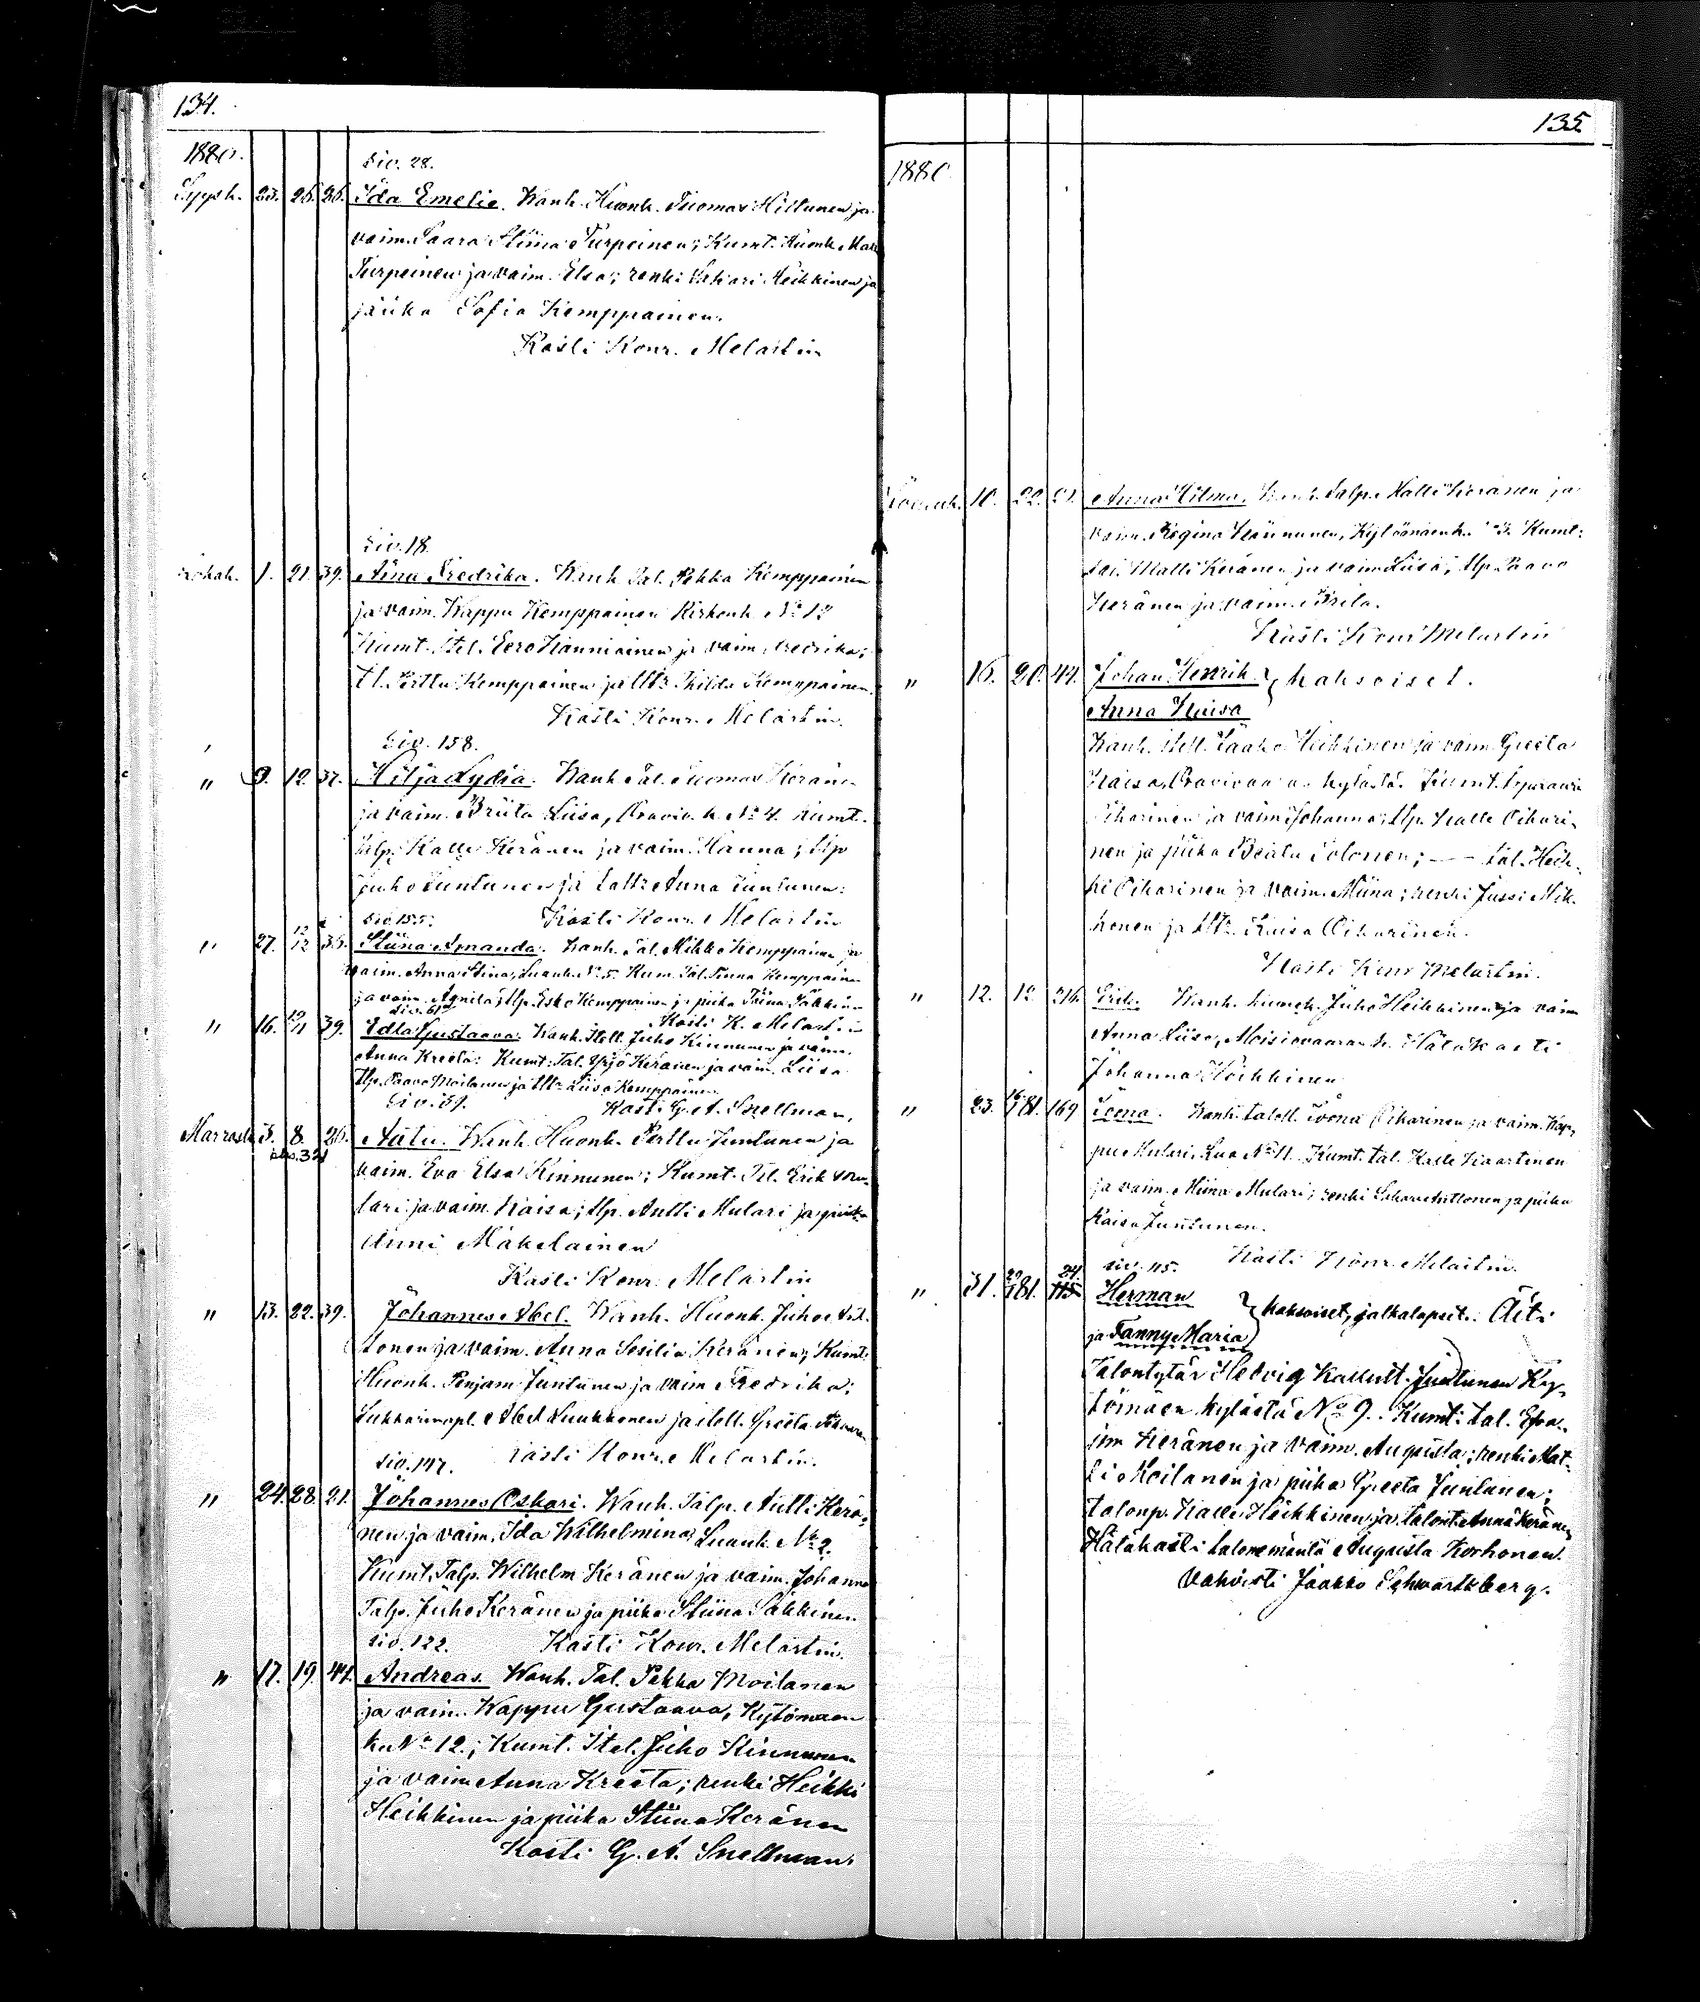 134.
1880.
siv. 28.
Syysk. 23. 26. 26. Ida Emelie. Wanh. Huonk. Tuomas Hiltunen ja
vaim. Saara Stiina Turpeinen; Kumt. Huonk. Matti
Turpeinen ja vaim. Elsa; renki Sakari Heikkinen ja
piika Sofia Kemppainen.
Kasti Konr. Melartin
siv. 18.
Lokak. 1. 21. 39. Aina Fredrika. Wanh. Tal. Pekka Kemppainen
ja vaim. Wappu Kemppainen Kirkonk. No 12
Kumt. Itel. Eero Hanniainen ja vaim. Fredrika;
tl. Perttu Kemppainen ja ttr. Hilda Kemppainen.
Kasti Konr. Melartin.
siv. 158.
" 9. 12. 37. Hilja Lydia. Wanh. Tal. Tuomas Keränen
ja vaim. Briita Liisa, Oraviv. k. No 4. Kumt.
Talp. Kalle Keränen ja vaim. Hanna; tlp
Juho Juntunen ja taltr Anna Juntunen.
siv 155. Kasti Konr. Melartin
" 27. 12/12 35. Stiina Amanda. Wanh. Tal. Mikko Kemppainen ja
vaim. Anna Stina, Luank. No 5. Kum. Tal. Kemppainen
ja vaim. Agnita; tlp. Esko Kemppainen ja piika Säkkinen
Kasti K. Melartin
" 16. 39. Edla Gustaava. Wanh. Itell. Juho Kinnunen ja vaim.
Anna Kreeta: Kumt: Tal. Yrjö Keränen ja vaim. Liisa
tlp. Paavo Moilanen ja ttr Liisa Kemppainen.
siv. 59. Kasti G. A. Snellman.
Marrask. 5. 8. 26. Aatu. Wanh. Huonk. Perttu Juntunen ja
siv. 321
vaim. Eva Elsa Kinnunen; Kumt. Itel. Erik Mu-
lari ja vaim. Kaisa; tlp. Antti Mulari ja piika
Anni Mäkeläinen
Kasti Konr. Melartin
" 13. 22. 39. Johannes Abel. Wanh. Huonk. Juho Art-
tonen ja vaim. Anna Sesilia Keränen; Kumt:
Huonk. Penjam Juntunen ja vaim Fredrika;
Abel Luukkonen ja itell. Greeta
siv. 147. Kasti Konr. Melartin.
" 24. 28. 21. Johannes Oskari. Wanh. Talp. Antti Kerä-
nen ja vaim. Ida Wilhelmina Luank. No 2.
Kumt. Talp. Wilhelm Keränen ja vaim. Johanna
Talp. Juho Keränen ja piika Stiina Säkkinen.
siv. 122. Kasti Konr. Melartin.
" 17. 19. 41. Andreas. Wanh. Tal. Pekka Moilanen
ja vaim. Wappu Gustaava, Kytömaen
k. No 12.; Kumt. Itel. Juho Kinnunen
ja vaim Anna Kreeta; renki Heikki
Heikkinen ja piika Stiina Keränen
Kasti G. A. Snellman.
135.
1880
10. 22. 21. Anna Hilma. Wanh. Talp. Kalle Keränen ja
vaim. Regina Kinnunen, Kytömäen k. 3. Kumt:
tal. Matti Keränen ja vaim Liisa; tlp. Paavo
Keränen ja vaim. Brita.
Kasti Konr Melartin
" 16. 20. 44. Johan Henrik } kaksoiset.
Anna Kaisa
Wanh. Itell. Jaako Heikkinen ja vaim Greeta
Kaisa, Oravivaaran kylästä. Kumt.
Oikarinen ja vaim Johanna; tlp. Kalle Oikari-
nen ja piika Beata Tolonen; — — tal. Heik-
ki Oikarinen ja vaim. Miina; renki Jussi Mik-
konen ja ttr. Kaisa Oikarinen.
Kasti Konr Melartin.
" 12. 12. 316. Erik. Wanh. Huonek. Juho Heikkinen ja vaim
Anna Liisa, Moisiovaaran k. Hätäkasti
Johanna Heikkinen
" 23. 169 Teena. Wanh. talell. Oikarinen ja vaim. Kap-
pu Mulari, Lua No 11. Kumt. tal. Kalle Kaartinen
ja vaim. Miina Mulari; renki Sakari Anttonen ja piika
Kaisa Juntunen.
siv. 45. Kasti Konr. Melartin.
" 31. 24. Herman
ja Fanny Maria } kaksoiset, jalkalapsit. Äiti
Talontytär Hedvig Kallunt. Juntunen Ky-
tömäen kylästä No 9. Kumt: tal. Efra-
im Keränen ja vaim. Augusta; renki Mat-
ti Moilanen ja piika Greeta Juntunen;
talonp. Kalle Heikkinen ja talont. Anna Keränen
Hätäkasti talonemäntä Augusta Korhonen.
vahvisti Jaakko Schwartzberg.